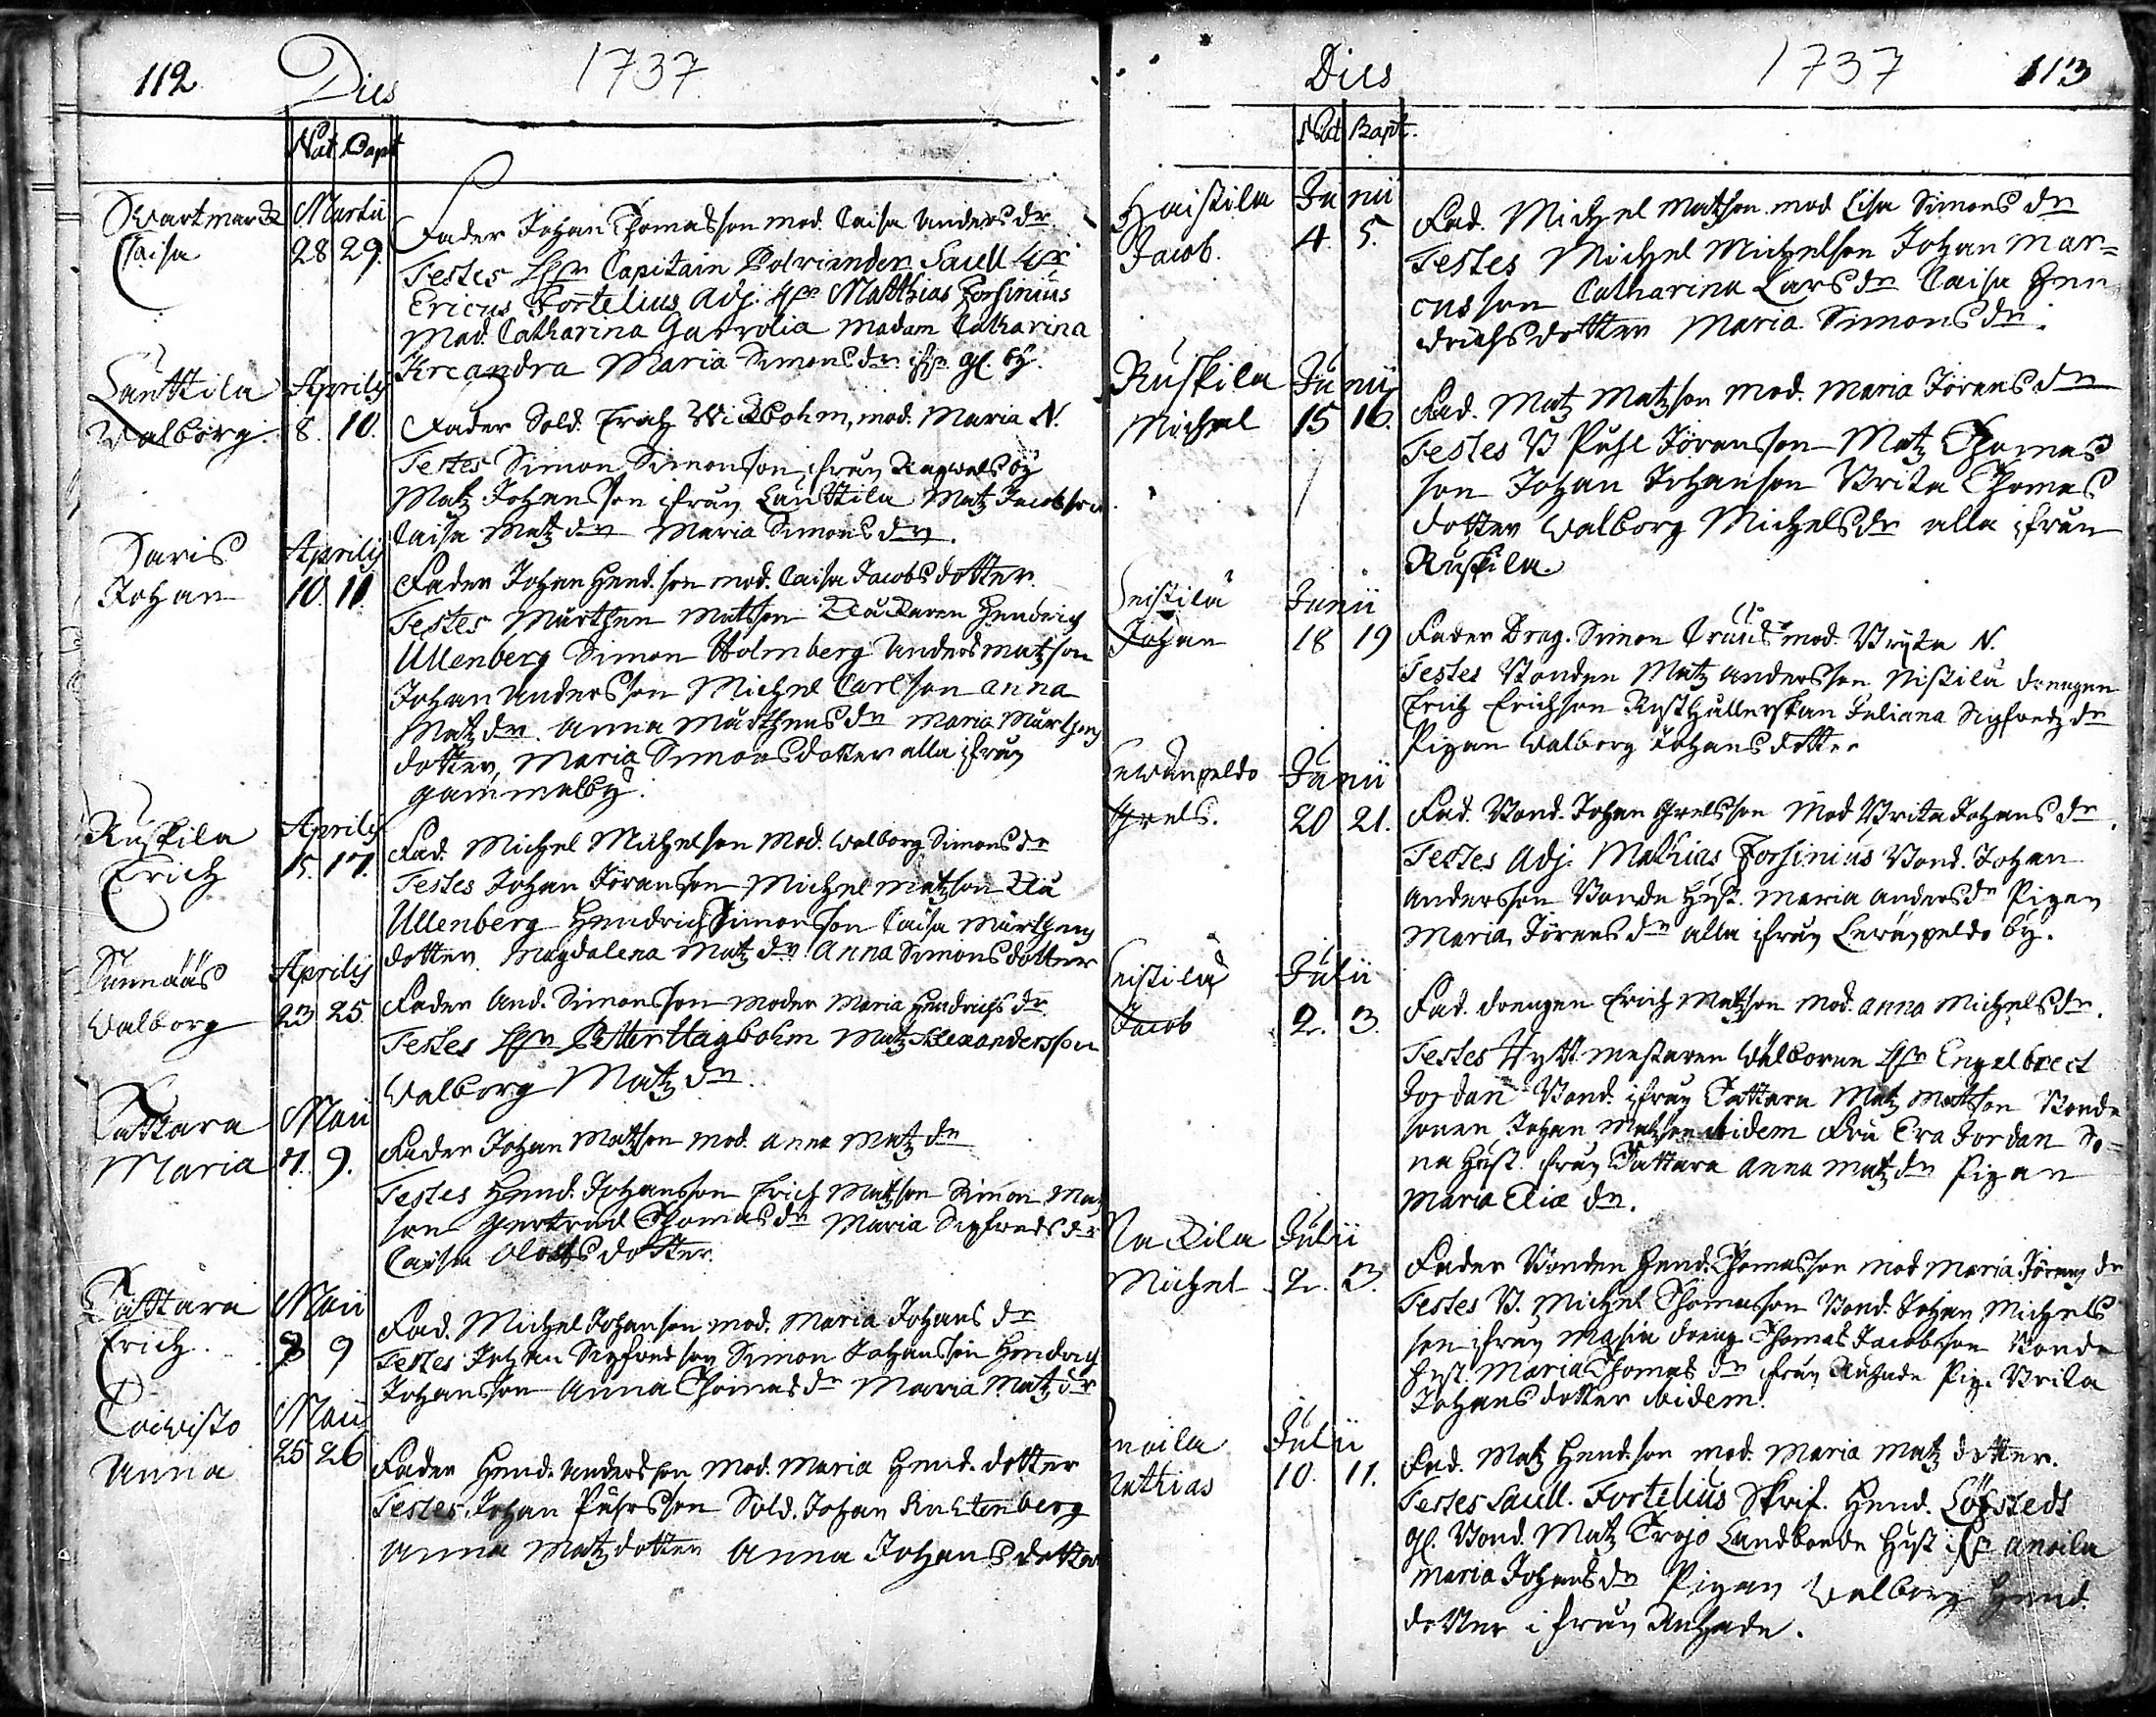 112 Dies 1737
Nat Bapt
Swartmark Martii
Caisa 28 29. Fader Johan Thomasson mod. Caisa Andersdr
Testes Hr Capitain Sacell Hr
Ericus Fortelius Adj. Hr Matthias Forsinius
Mad. Catharina Madam Catharina
Kreandra Maria Simonsdr ifr. gl. by.
Lanttila Aprilis
Walborg 8. 10. Fader Sold. Erich Wickbohm, mod. Maria N.
Testes Simon Simonson, ifrån by
Matz Johansson ifrån Lanttila Matz Jacobson
Caisa Matzdr Maria Simonsdr.
Saris Aprilis
Johan 10. 11. Fader Johan Hend.son mod. Caisa Jacobsdotter
Testes Mårthen Matsson Hendrich
Ullenberg Simon Holmberg Anders Matzson
Johan Andersson Michel Carlson Anna
Matzdr. Anna Mårthensdr Maria Mårthens
dotter, Maria Simonsdotter alla ifrån
gammelby.
Ruskila Aprilis
Erich 15. 17. Fad. Michel Michelson Mod. Walborg Simonsdr
Testes Johan Jöransson Michel Matzson
Ullenberg Hendrich Simonsson Caisa Mårthens
dotter Magdalena Matzdr Anna Simonsdotter
Sunnääs Aprilis
Walborg 23 25. Fader And. Simonsson Moder Maria Hendrichsdr
Testes Hr Petter Hagbohm Matz Alexandersson
Walborg Matzdr.
Tattara Maii
Maria 7. 9. Fader Johan Matzson mod. Anna Matzdr
Testes Hend. Johansson Erich Matzson Simon Matz
son Gertrud Thomasdr Maria Sigfredsdr
Caisa Olofsdotter.
Tattara Maii
Erich. 8 9 Fad. Michel Johanson mod. Maria Johansdr
Testes Johan Sigfredson Simon Johansson Hendrich
Johansson Anna Thomasdr Maria Matzdr
Coiwisto Maii
Anna 25 26 Fader Hend. Andersson Mod. Maria Hend.dotter
Testes Johan Påhrsson Sold. Johan
Anna Matzdotter Anna Johansdotter
Dies 1737 113
Nat Bapt.
Haistila Junii
Jacob. 4. 5. Fad. Michel Matson mod Lisa Simonsdr
Testes Michel Michelson Johan Mar=
cusson Catharina Larsdr Caisa Hen
drichsdotter Maria Simonsdr.
Ruskila Junii
Michel 15 16. Fad. Matz Matzson Mod. Maria Jöransdr
Testes B Påhl Jöransson Matz Thomas
son Johan Johanson Brita Thomas
dotter Walborg Michelsdr alla ifrån
Ruskila.
Johan Junii
18 19 Fader Drag. Simon mod. Bryta N.
Testes Bonden Matz Andersson drengen
Erich Erichson Rusthållerskan Juliana Sigfredzdr
Pigan Walborg Johansdotter
Junii
Grels. 20 21. Fad. Bond. Johan Grelsson Mod Brita Johansdr.
Testes Adj. Mathias Forsinius Bond. Johan
Andersson Bonde Hust. Maria Andersdr Pigan
Maria Jöransdr alla ifrån by.
Julii
Jacob 2. 3. Fad. drengen Erich Matzson Mod. Anna Michelsdr.
Testes Wälborne Hr Engelbrect
Jordan Bond. ifrån Tattara Matz Matsson Bonde
sonen Johan Matzson ibidem Fru Eva Jordan Bo=
na Hust. ifrån Tattara Anna Matzdr Pigan
Maria Eliædr.
Nackila Julii
Michel 2. 3. Fader Bonden Hend. Thomasson Mod Maria Jöransdr
Testes B. Michel Thomasson Bond. Johan Michels
son ifrån Masia dreng Thomas Jacobsson Bonde
Hust. Maria Thomasdr ifrån Pig. Brita
Johansdotter ibidem.
Anoila Julii
Mathias 10. 11. Fad. Matz Hend.son mod. Maria Matzdotter.
Testes Sacell. Fortelius Skrif. Hend. Löfstedt
gl. Bond. Matz Trojo Landbonde Hust ifr Anoila
Maria Johansdr Pigan Walborg Hend.
dotter ifrån